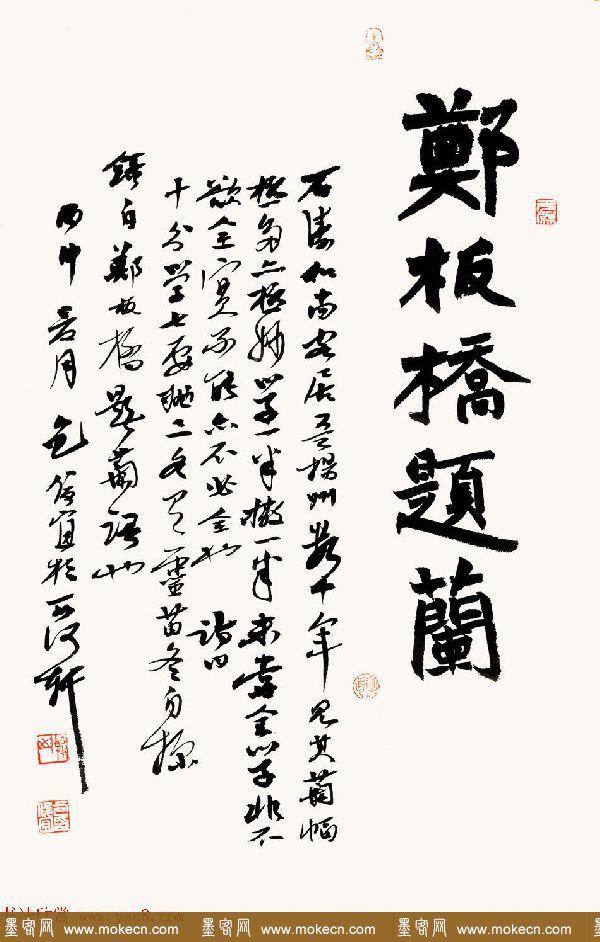 鄭板橋題蘭
石濤和尚客居吾揚州數十年見其蘭幅
極多亦極妙學一半撇一半未嘗全學非不
欲全實不能亦不必全也 詩曰
十分學七要拋三各有靈苗各自探
錄自鄭板橋題蘭語也
丙申暑月包宜於石河軒
墨客网 www.mokecn.com 墨客网 www.mokecn.com 墨客网 www.mokecn.com